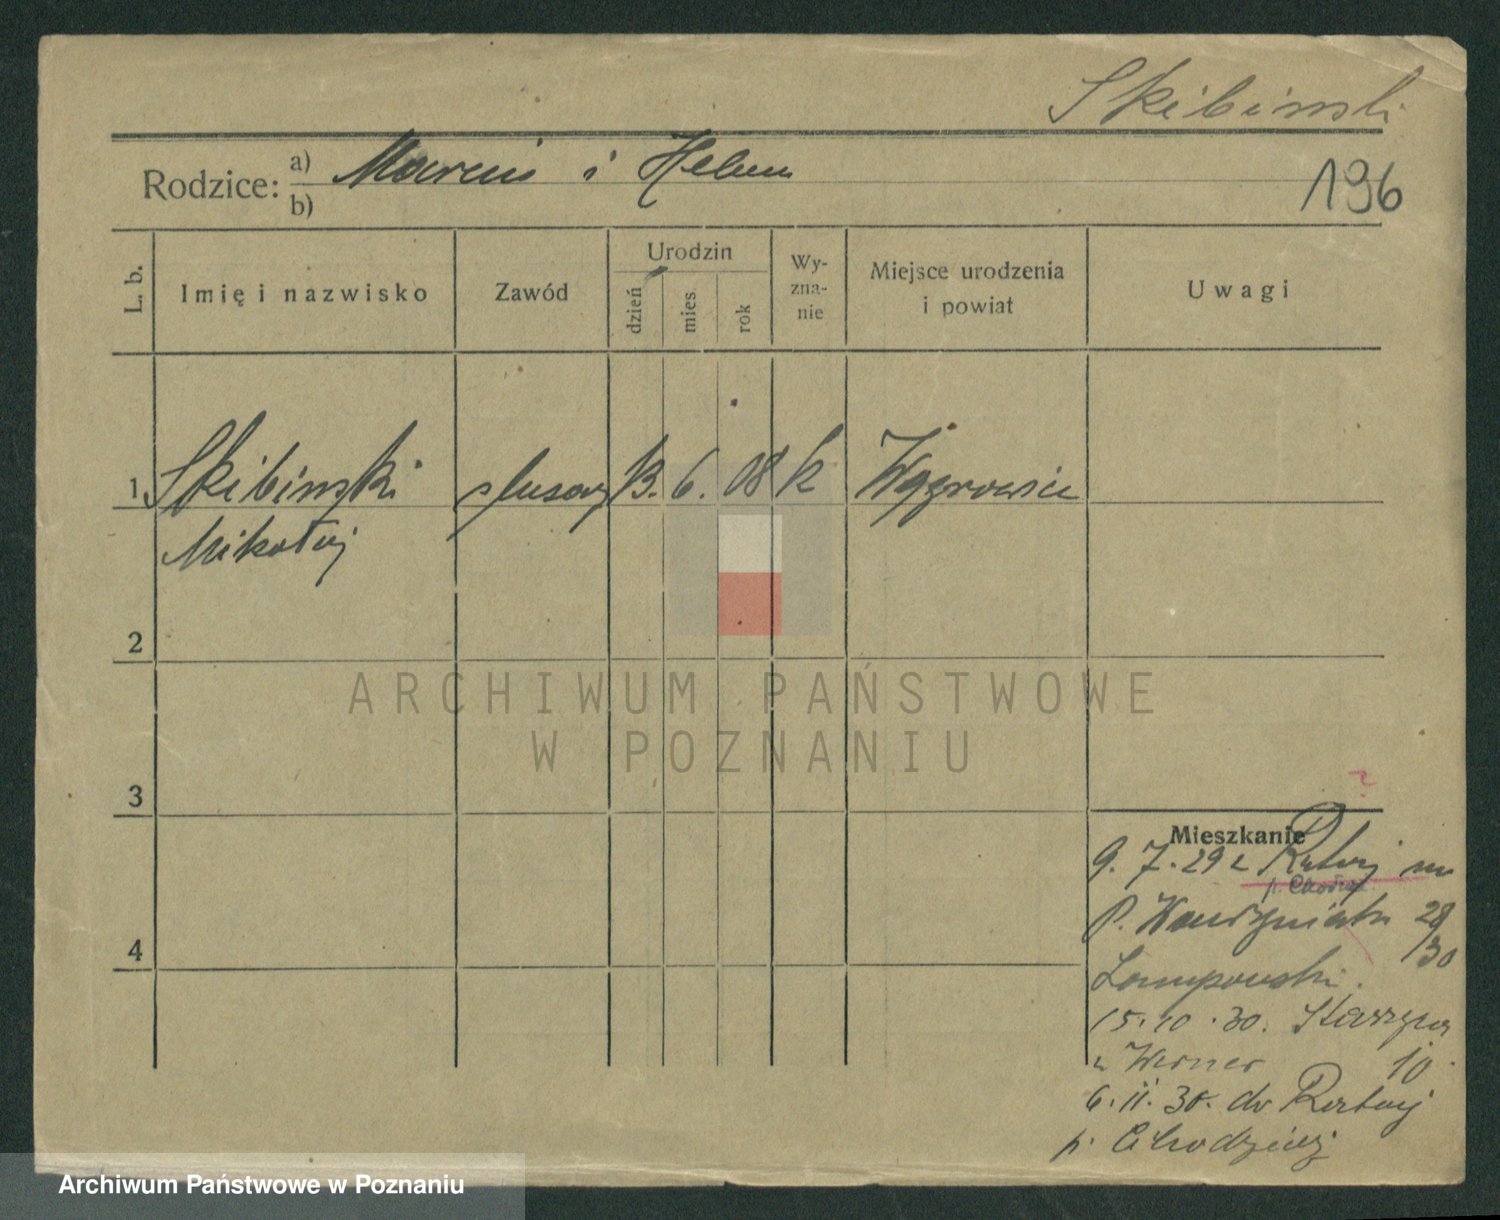 Skibinski
Rodzice: a) Marcin i Helena
b)
196
L. b.
Imię i nazwisko
Zawód
Urodzin
dzień
mies.
rok
Wy-
zna-
nie
Miejsce urodzenia
i powiat
Uwagi
1 Skibinski ślusarz 13. 6. 08 k Wągrowiec
Mikołaj
2
3
4
ARCHIWUM PAŃSTWOWE
W POZNANIU
?
Mieszkanie
9. 7. 29 z Rataj
p. Chodzież
P. 28/30
15. 10. 30.
u Werner 10
6. 11. 30. do Rataj
p. Chodzież
Archiwum Państwowe w Poznaniu